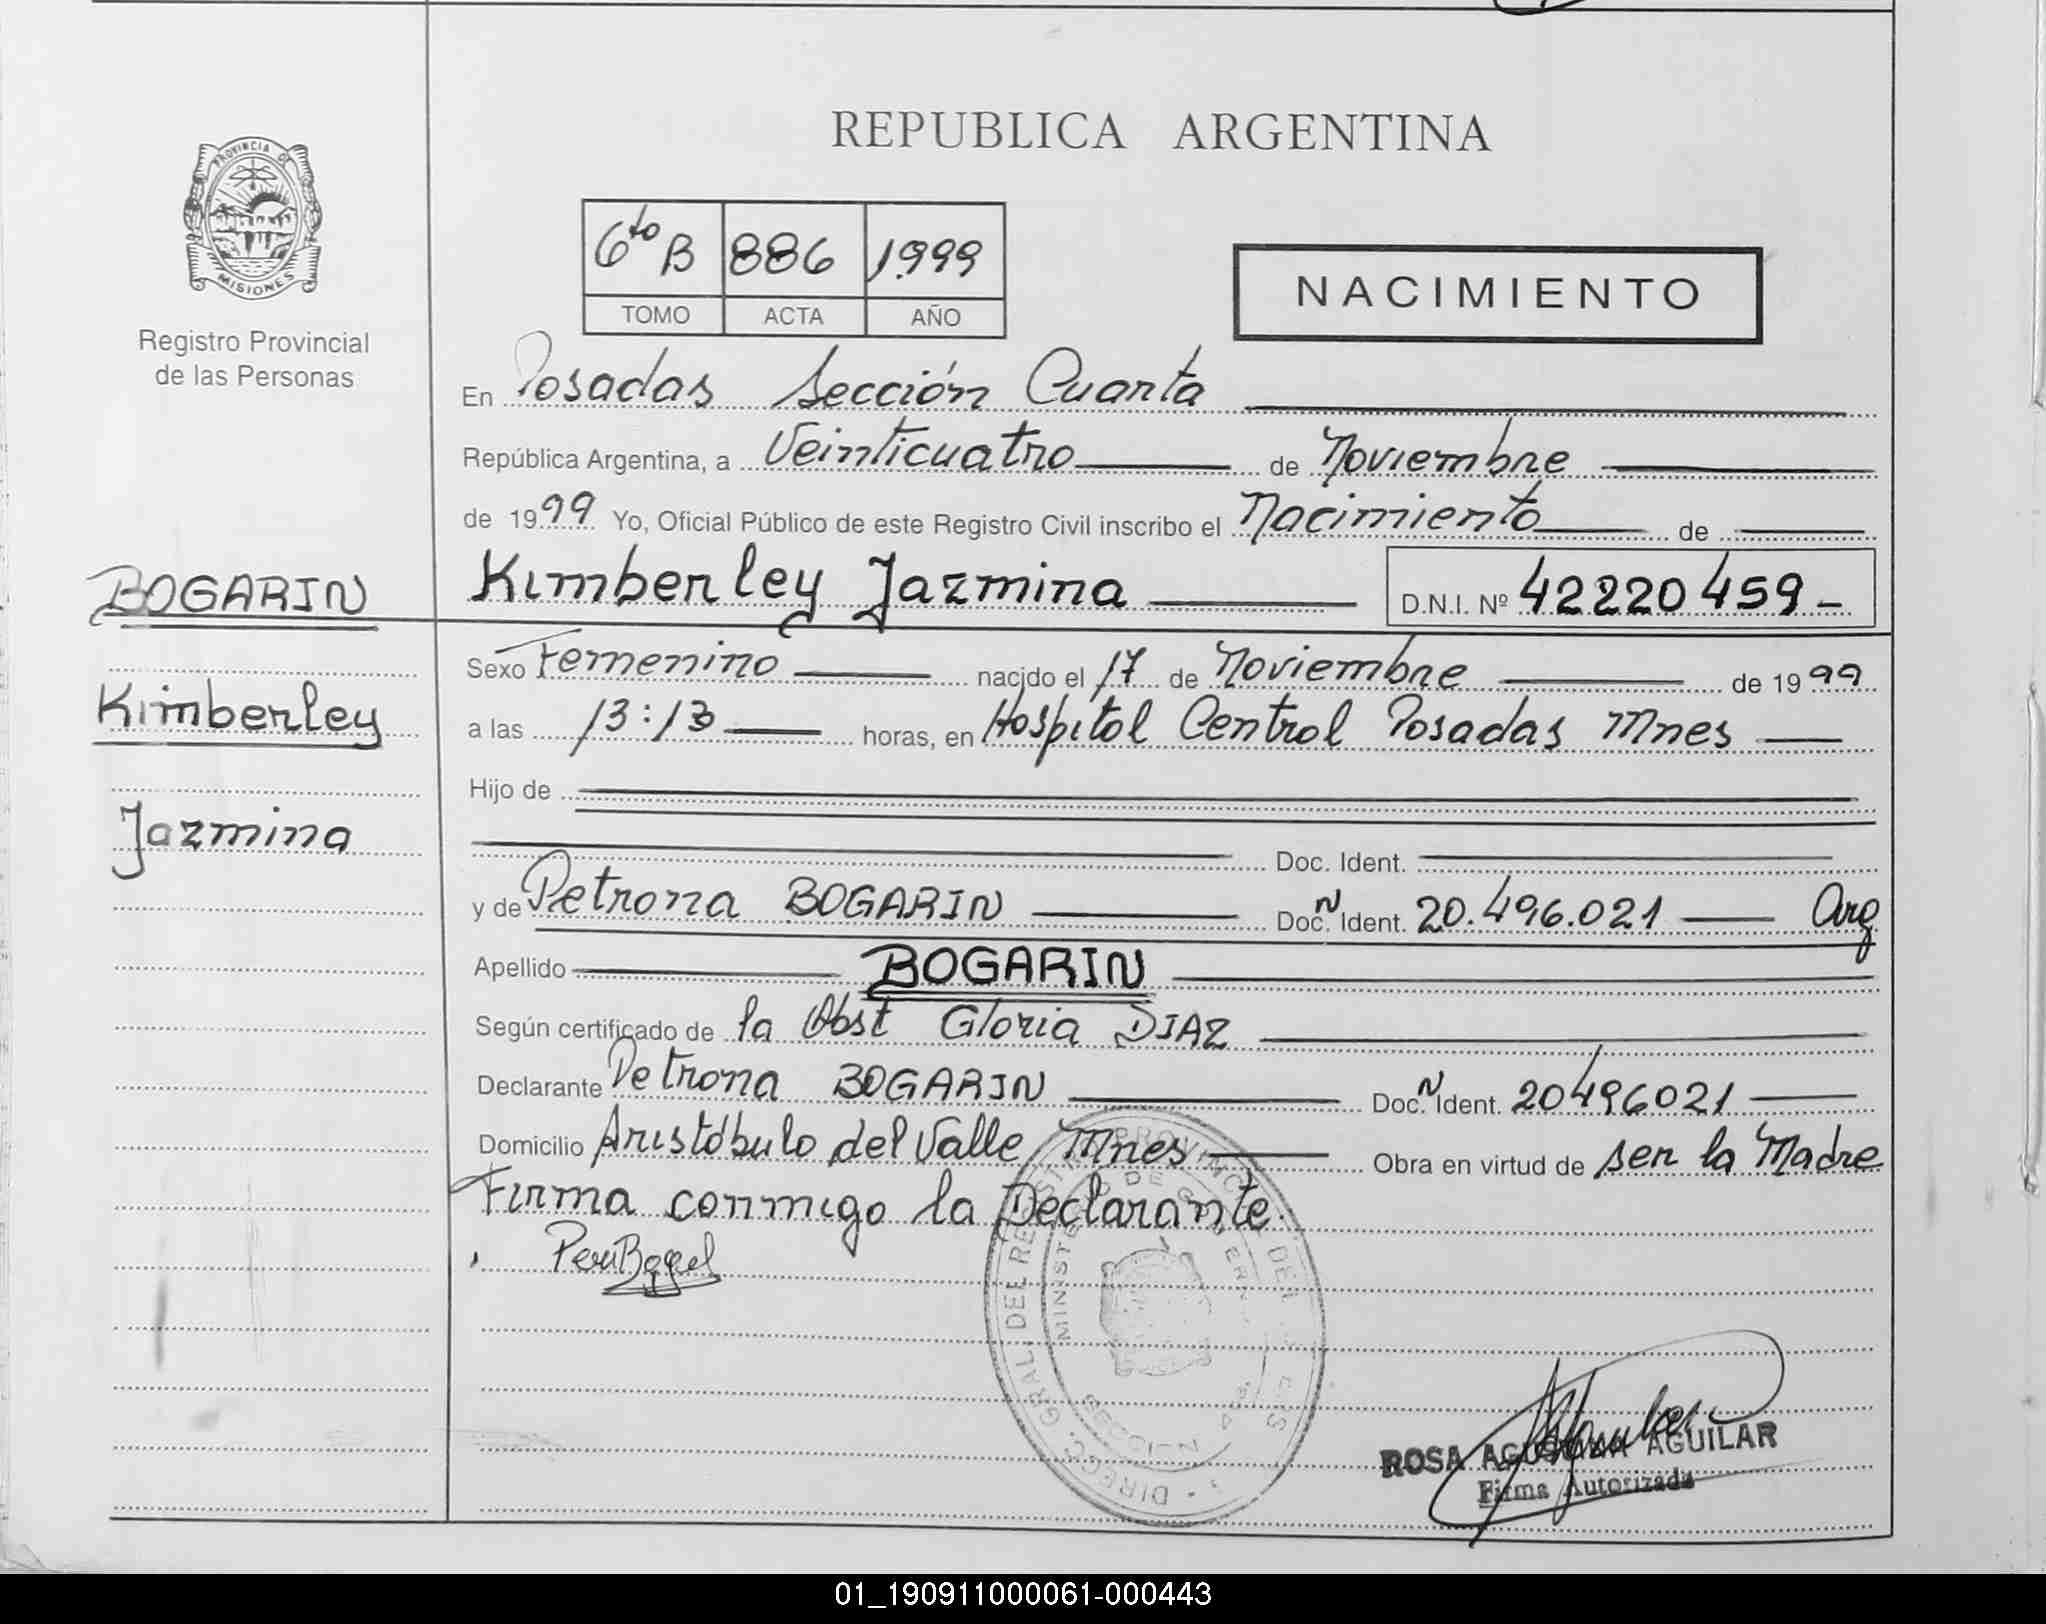 REPUBLICA ARGENTINA
PROVINCIA DE
MISIONES
Registro Provincial
de las Personas
6to B 886 1.999
TOMO ACTA AÑO
NACIMIENTO
En Posadas Sección Cuarta
República Argentina, a Veinticuatro de Noviembre
de 1999 Yo, Oficial Público de este Registro Civil inscribo el Nacimiento de
BOGARIN
Kimberley Jazmina D.N.I. Nº 42220459-
Sexo Femenino nacido el 17 de Noviembre de 1999
Kimberley
a las 13:13 horas, en Hospital Central Posadas Mnes
Hijo de
Jazmina
Doc. Ident.
y de Petrona BOGARIN Doc. N Ident. 20.496.021 Arg
Apellido BOGARIN
Según certificado de la Obst Gloria DIAZ
Declarante Petrona BOGARIN Doc. N Ident. 20496021
Domicilio Aristóbulo del Valle Mnes Obra en virtud de ser la Madre
Firma conmigo la Declarante.
DIRECC. GRAL. DEL REGIST. PROVINC. DE LAS
MINISTERIO DE GOBIERNO
ROSA AGUSTINA AGUILAR
Firma Autorizada
01_190911000061-000443